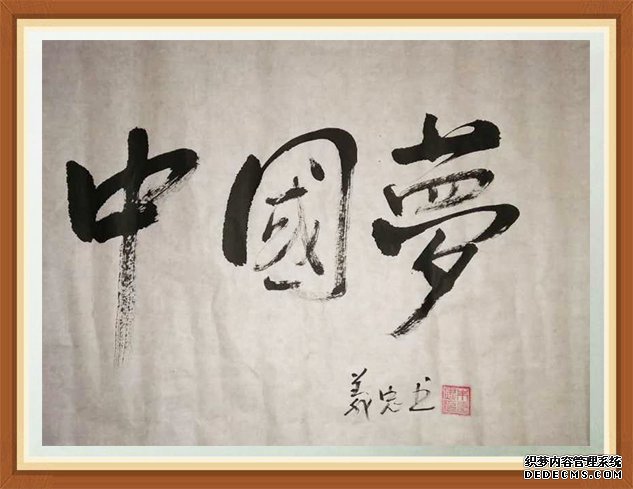 中國夢
義忠书
织梦内容管理系统
DEDECMS.COM